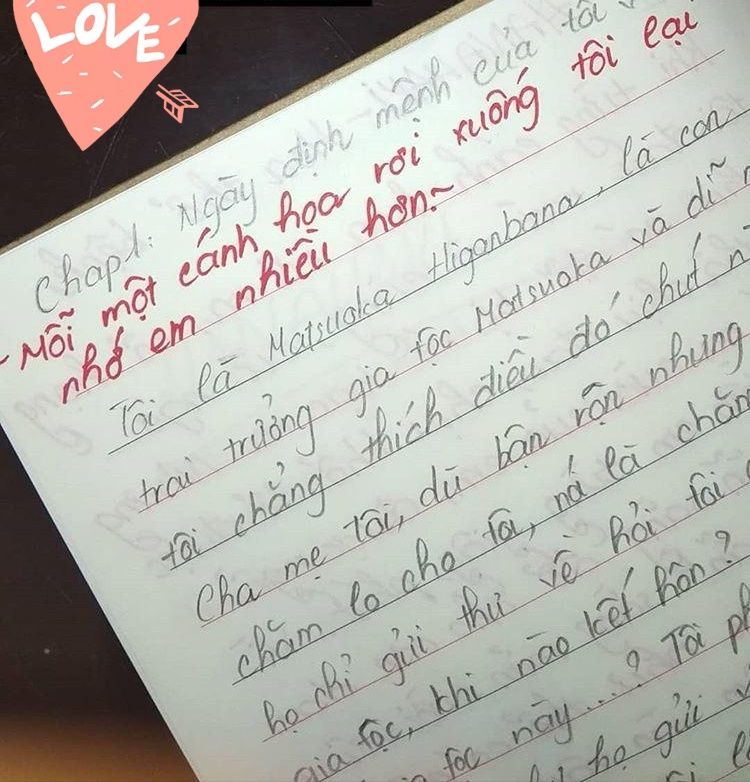 LOVE
Chap1: Ngày định mệnh của tôi
- Mỗi một cánh hoa rơi xuống tôi lại
nhớ em nhiều hơn~
Tôi là Matsuoka Higanbana, là con
trai trưởng gia tộc Matsuoka và dĩ
tôi chẳng thích điều đó chút
Cha mẹ tôi, dù bận rộn nhưng
chăm lo cho tôi, nói là chăm
họ chỉ gửi thư về hỏi tôi
gia tộc, khi nào kết hôn?
tộc này....? Tôi
họ gửi